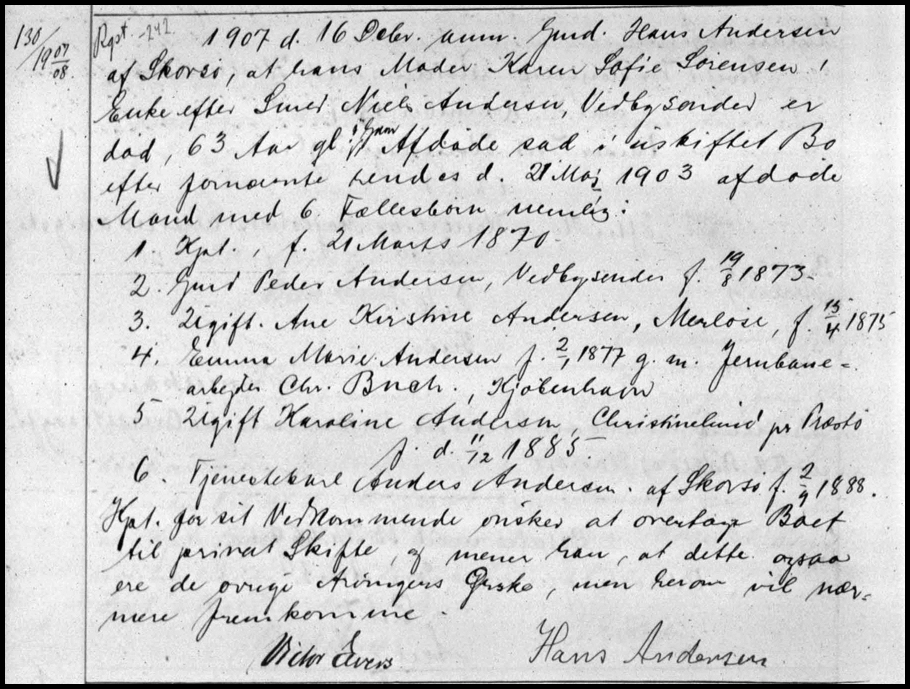 130/1907/08
Rgst. 242
1907 d. 16 Debr. anm. Gmd. Hans Andersen
af Skorsø, at hans Moder Karen Sofie Sørensen,
Enke efter Smed Niels Andersen, Vedbysønder er
død, 63 Aar gl. Afdøde sad i uskiftet Bo
efter fornævnte hendes d. 21 Maj 1903 afdøde
Mand med 6 Fællesbørn nemlig:
1. Kpt., f. 21 Marts 1870.
2. Gmd Peder Andersen, Vedbysønder f. 19/8 1873.
3. Ugift. Ane Kirstine Andersen, Merløse, f. 13/4 1875
4. Emma Marie Andersen f. 2/1 1877 g. m. Jernbane=
arbejder Chr. Buch., Kjøbenhavn
5 Ugift Karoline Andersen Christinelund pr Præstø
f. d. 11/12 1885.
6. Tjenestekarl Anders Andersen. af Skorsø f. 2/9 1888.
Kpt. for sit Vedkommende ønsker at overtage Boet
til privat Skifte, og mener han, at dette ogsaa
ere de øvrige Arvingers Ønske, men herom vil nær=
mere fremkomme.
Victor Evers Hans Andersen